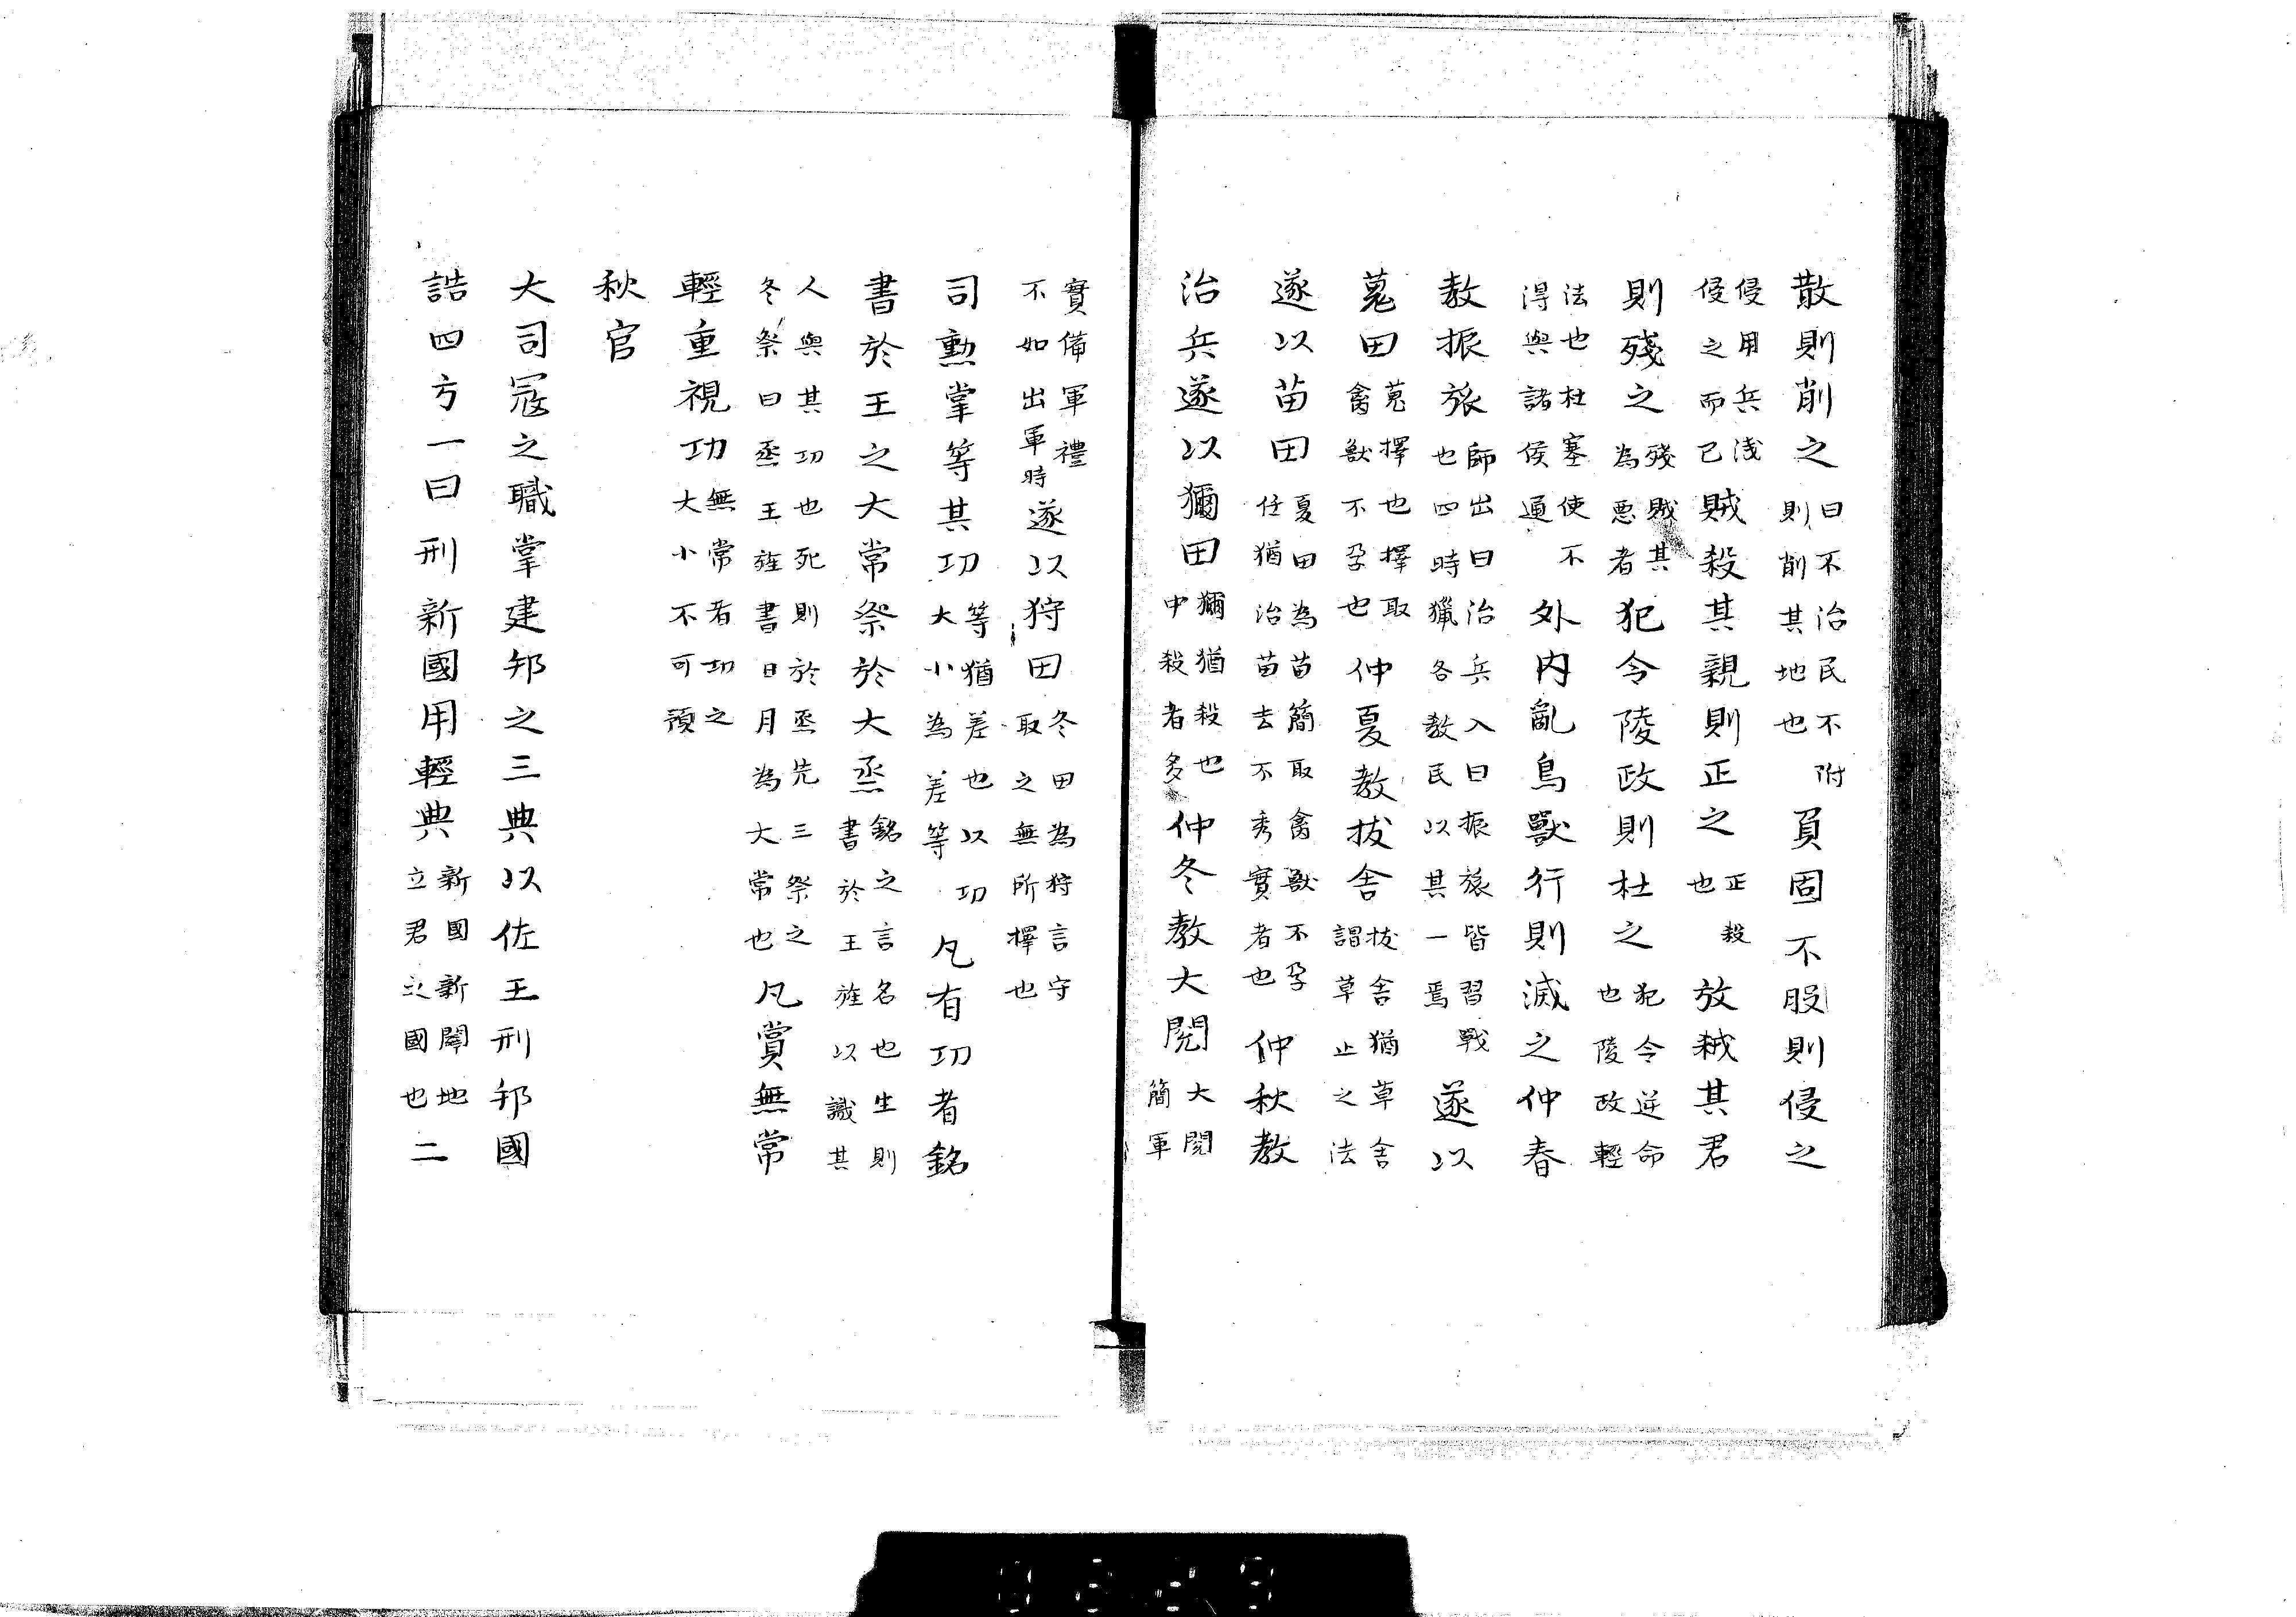 散則削之曰不治民不附則削其地也負固不服則侵之
侵用兵淺侵之而已賊殺其親則正之正殺也放弒其君
則殘之殘賊其為惡者犯令陵政則杜之犯令逆命也陵政輕
法也杜塞使不得與諸侯通外内亂鳥獸行則滅之仲春
教振旅師出曰治兵入曰振旅皆習戰也四時獵各教民以其一焉遂以
蒐田蒐擇也擇取禽獸不孕也仲夏教拔舍拔舍猶草舍謂草止之法
遂以苗田夏田為苗簡取禽獸不孕任猶治苗去不秀實者也仲秋教
治兵遂以獮田獮猶殺也中殺者多仲冬教大閱大閱簡軍
實備軍禮不如出軍時遂以狩田冬田為狩言守取之無所擇也
司勳掌等其功等猶差也以功大小為差等凡有功者銘
書於王之大常祭於大烝銘之言名也生則書於王旌以識其
人與其功也死則於烝先三祭之冬祭曰烝王旌書日月為大常也凡賞無常
輕重視功無常者功之大小不可預
秋官
大司寇之職掌建邦之三典以佐王刑邦國
詰四方一曰刑新國用輕典新國新闢地立君之國也二